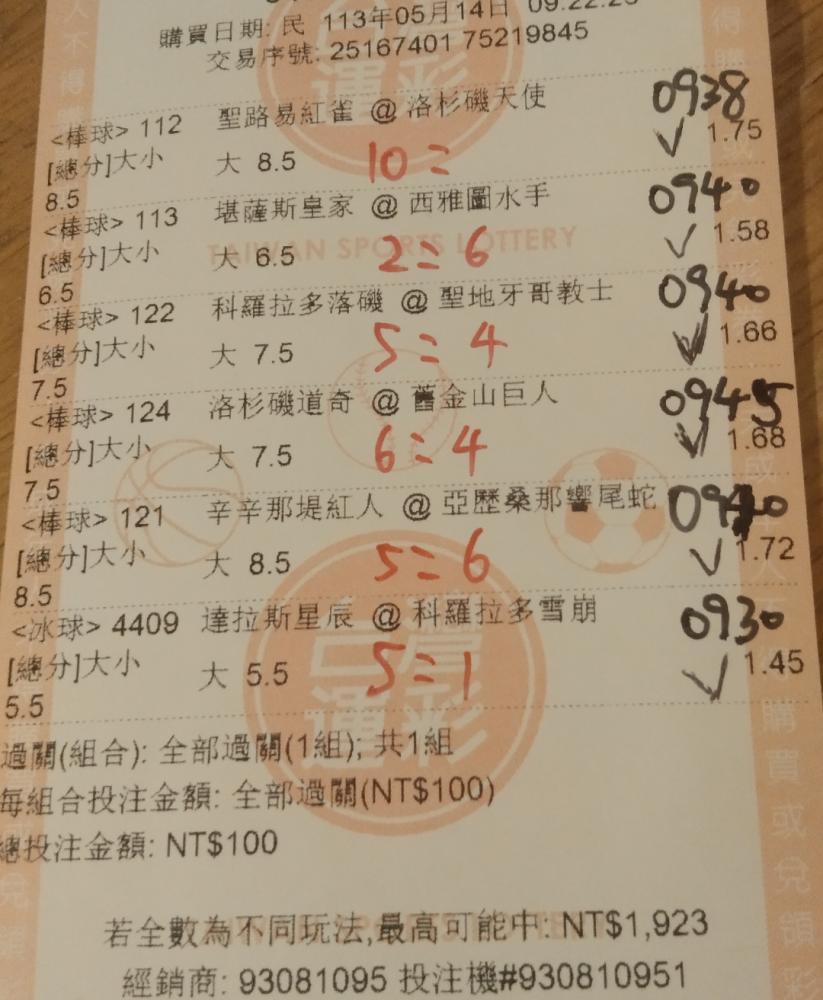 購買日期: 民 113年05月14日 09:22:25
交易序號: 25167401 75219845
<棒球> 112 聖路易紅雀 @ 洛杉磯天使 0938
[總分]大小 大 8.5 10= ✓ 1.75
8.5
<棒球> 113 堪薩斯皇家 @ 西雅圖水手 0940
[總分]大小 大 6.5 2=6 ✓ 1.58
6.5
TAIWAN SPORTS LOTTERY
<棒球> 122 科羅拉多落磯 @ 聖地牙哥教士 0940
[總分]大小 大 7.5 5=4 ✓ 1.66
7.5
<棒球> 124 洛杉磯道奇 @ 舊金山巨人 0945
[總分]大小 大 7.5 6=4 ✓ 1.68
7.5
<棒球> 121 辛辛那堤紅人 @ 亞歷桑那響尾蛇 0940
[總分]大小 大 8.5 5=6 ✓ 1.72
8.5
<冰球> 4409 達拉斯星辰 @ 科羅拉多雪崩 0930
[總分]大小 大 5.5 5=1 ✓ 1.45
5.5
台灣運彩
過關(組合): 全部過關(1組); 共1組
每組合投注金額: 全部過關(NT$100)
總投注金額: NT$100
若全數為不同玩法,最高可能中: NT$1,923
經銷商: 93081095 投注機#930810951